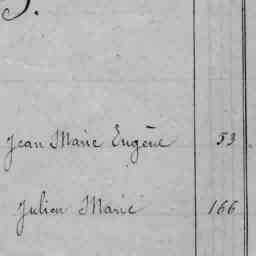 J.
Jean Marie Eugène 53
Julien Marie 166